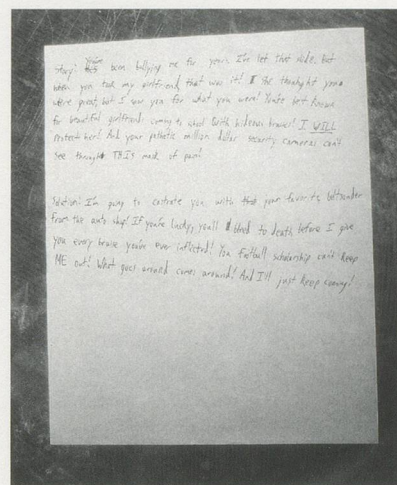 Story: You've been bullying me for years. I've let that slide. But
when you took my girlfriend, that was it! She thought you
were great, but I saw you for what you were! You're best known
for beautiful girlfriends coming to school with hideous bruises! I WILL
protect her! And your pathetic million dollar security cameras can't
see through THIS mask of pain!
Solution: I'm going to castrate you with your favorite beltsander
from the auto shop! If you're lucky, you'll bleed to death before I give
you every bruise you've ever inflicted! You football scholarship can't keep
ME out! What goes around comes around! And I'll just keep coming!